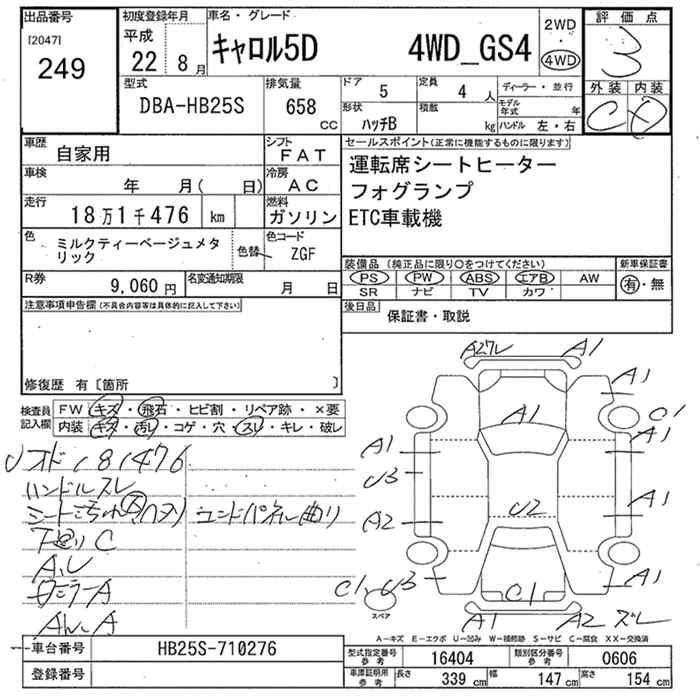 出品番号 初度登録年月 車名・グレード 2WD 評価点
[2047] 平成 ・
249 22 8月 キャロル5D 4WD_GS4 4WD 3
型式 排気量 ドア 5 定員 4 人 ディーラー・並行 外装 内装
DBA-HB25S 658 CC 形状 ハッチB 積載 kg モデル年式 年 C D
ハンドル 左・右
車歴 自家用 シフト FAT セールスポイント(正常に機能するものに限ります)
車検 年 月( 日) 冷房 AC 運転席シートヒーター
フォグランプ
走行 18万1千476 km 燃料 ガソリン ETC車載機
色 ミルクティーベージュメタリック 色替 色コード ZGF
装備品(純正品に限り○をつけてください) 新車保証書
R券 9,060円 名変通知期限 月 日 PS PW ABS エアB AW 有・無
SR ナビ TV カワ
注意事項申告欄(不具合内容等は具体的に記入して下さい) 後日品 保証書・取説
修復歴 有〔箇所 〕
検査員記入欄 FW キズ・飛石・ヒビ割・リペア跡・×要
内装 キズ・汚れ・コゲ・穴・スレ・キレ・破レ
181476
ハンドルスレ
下廻りC
A2 A1
A1
A1 C1
A1 A1
U3
A2 U2 A1
C1 U3 C1 A1
スペア
A1 A2 ズレ
A-キズ E-エクボ U-凹み W-補修跡 S-サビ C-腐食 XX-交換済
車台番号 HB25S-710276 型式指定番号 参考 16404 類別区分番号 参考 0606
登録番号 車庫証明用 参考 長さ 339 cm 幅 147 cm 高さ 154 cm